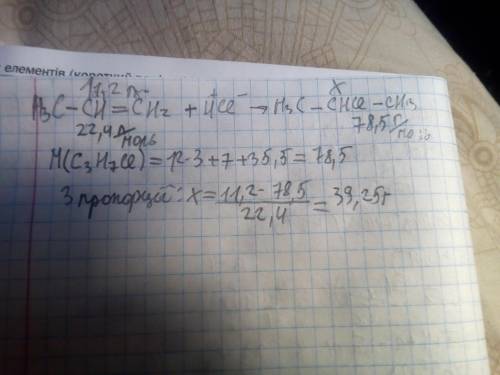 елементів (коротк
11,2 л          x
H₃C-CH=CH₂ + HCl → H₃C-CHCl-CH₃
22,4 л/моль          78,5 г/моль
M(C₃H₇Cl)=12·3+7+35,5=78,5
З пропорції: x = 11,2·78,5 / 22,4 = 39,25г